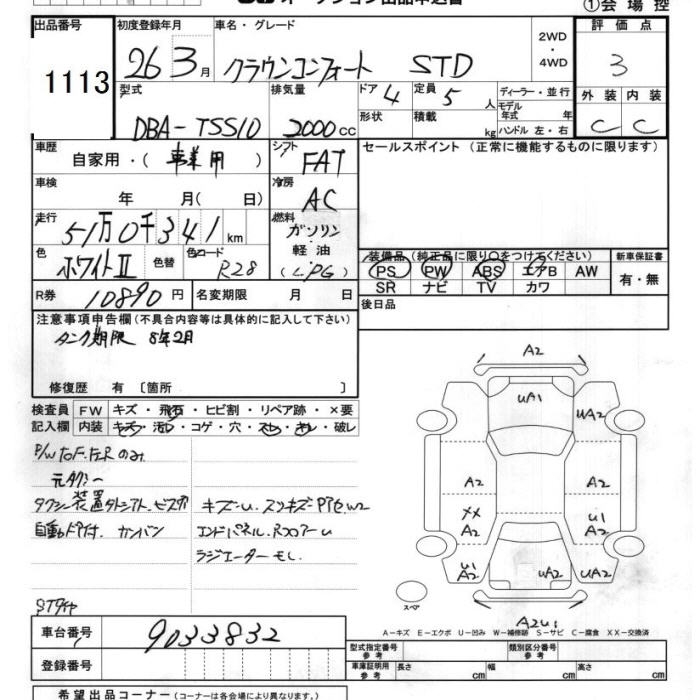 ①会場控
出品番号 初度登録年月 車名・グレード 2WD・4WD 評価点
1113 26 3月 クラウンコンフォート STD 3
型式 排気量 ドア 4 定員 5人 ディーラー・並行 外装 内装
DBA-TSS10 2000cc 形状 積載 kg モデル年式 年 ハンドル 左・右 C C
車歴 自家用・(事業用) シフト FAT セールスポイント (正常に機能するものに限ります)
車検 年 月( 日) 冷房 AC
走行 51万0千341km 燃料 ガソリン・軽油・(LPG)
色 ホワイトⅡ 色替 色コード R28 装備品 (純正品に限り○をつけてください) 新車保証書
PS PW ABS エアB AW 有・無
SR ナビ TV カワ
R券 10890円 名変期限 月 日 後日品
注意事項申告欄 (不具合内容等は具体的に記入して下さい)
タンク期限 8年2月
修復歴 有 [箇所 ]
検査員 FW キズ・飛石・ヒビ割・リペア跡・×要
記入欄 内装 キズ・汚レ・コゲ・穴・スレ・キレ・破レ
元タクシー
自動ドア付. カンバン
エンドパネル. Rフロアーu
ラジエーターモレ.
STタイヤ
A2
uA1
uA2
A2 A2
XX u1
A2 A2
u1 A2 uA2 uA2
スペア
A2u1
A-キズ E-エクボ U-凹み W-補修跡 S-サビ C-腐食 XX-交換済
車台番号 9033832
型式指定番号 参考 類別区分番号 参考
登録番号 車庫証明用 参考 長さ cm 幅 cm 高さ cm
希望出品コーナー (コーナーは各会場により異なります。)